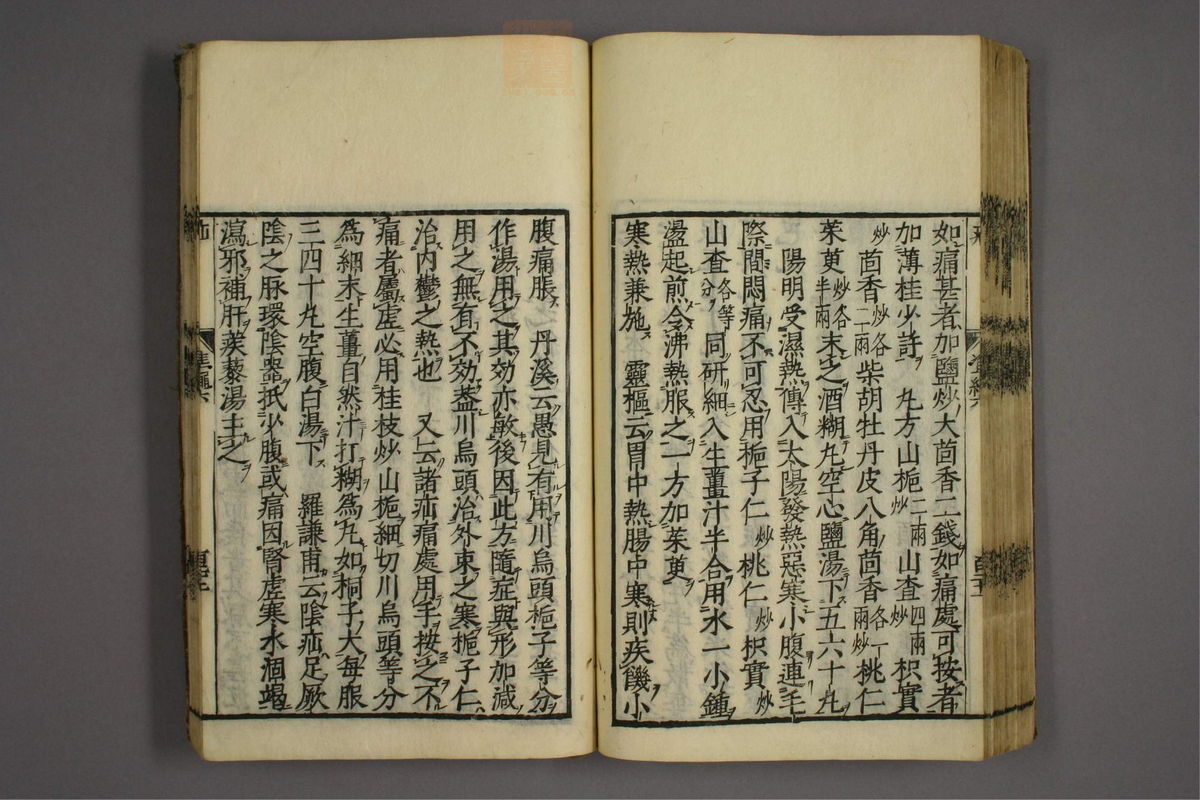 如痛甚者加鹽炒大茴香二錢如痛處可按者
加薄桂少許　丸方山梔二兩炒山査四兩炒枳實
炒茴香炒各二兩柴胡牡丹皮八角茴香各一兩炒桃仁
茱萸炒各半兩末之酒糊丸空心鹽湯下五六十丸
陽明受濕熱傳入太陽發熱惡寒小腹連毛
際間悶痛不可忍用梔子仁炒桃仁炒枳實炒
山査各等分同研細入生薑汁半合用水一小鍾
盪起煎令沸熱服之一方加茱萸
寒熱兼施　靈樞云胃中熱腸中寒則疾饑小
腹痛脹　丹溪云愚見有用川烏頭梔子等分
作湯用之其効亦敏後因此方隨症與形加減
用之無有不効葢川烏頭治外束之寒梔子仁
治内鬱之熱也　又云諸疝痛處用手按之不
痛者屬虛必用桂枝炒山梔細切川烏頭等分
爲細末生薑自然汁打糊爲丸如桐子大每服
三四十丸空腹白湯下　羅謙甫云陰疝足厥
陰之脉環陰器抵少腹或痛因腎虛寒水涸竭
瀉邪補肝蒺藜湯主之